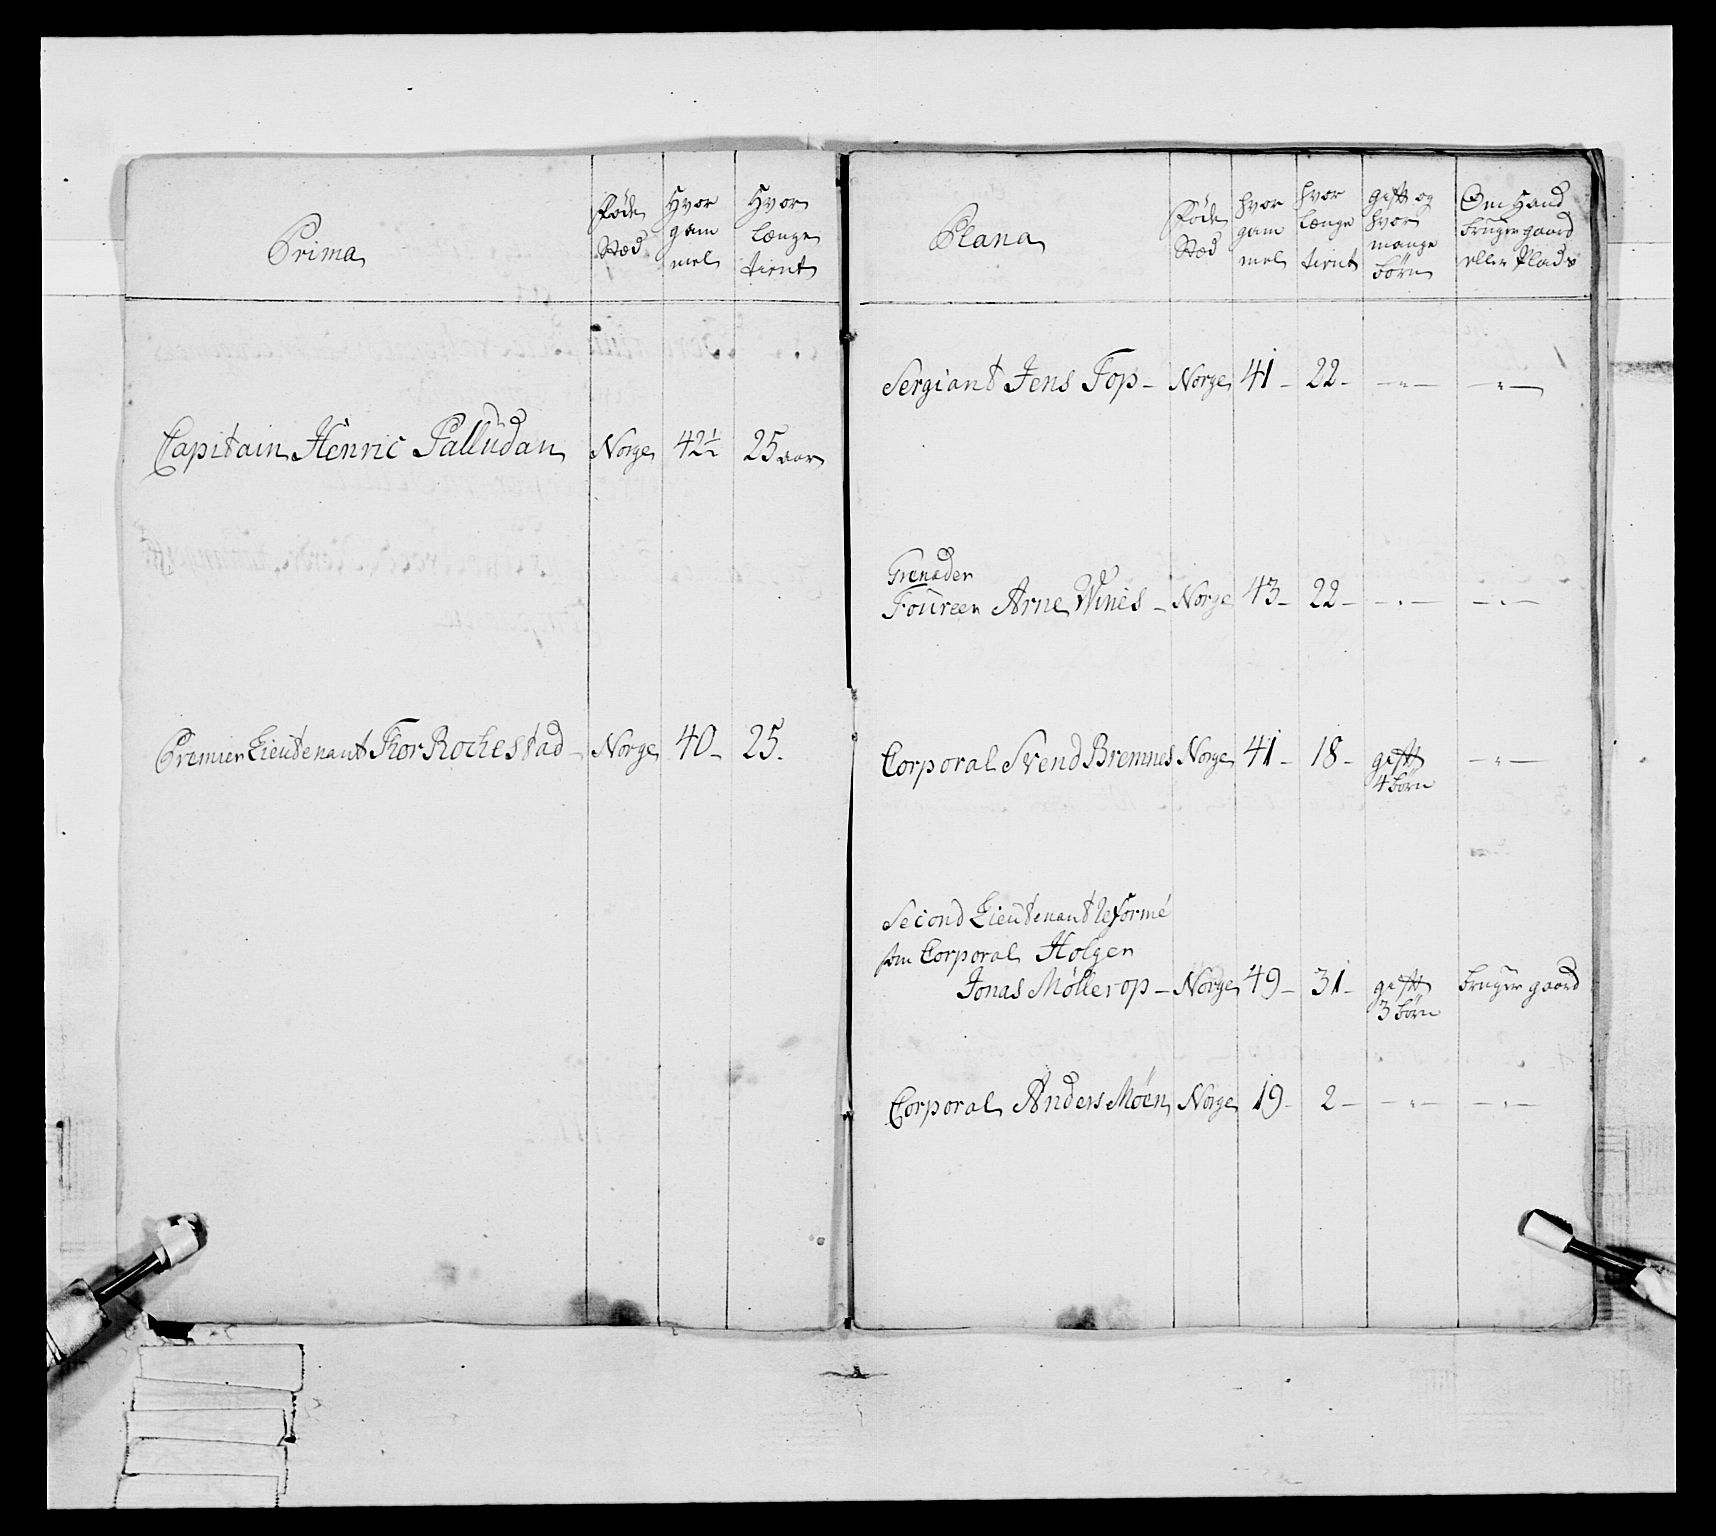 Prima
Føde
Stæd
Hvor
gam
mel
Hvor
længe
tient
Capitain Henric Palludan Norge 42½ 25 aar
Premier Lieutenant Thor Rochestad - Norge 40 - 25.
Plana
Føde
Stæd
hvor
gam
mel
hvor
længe
tient
gift og
hvor
mange
børn
Om Hand
bruger gaard
eller Plads
Sergiant Jens Top - Norge 41 - 22 - - " - - " -
Grenader
Foureer Arne Wines - Norge 43 - 22 - - " - - " -
Corporal Svend Bremnes Norge 41 - 18 - gift - " -
4 børn
Second Lieutenant reformé
som Corporal Holger
Jonas Møllerop - Norge 49 - 31 - gift bruger gaard
3 børn
Corporal Anders Møen Norge 19 - 2 - - " - - " -